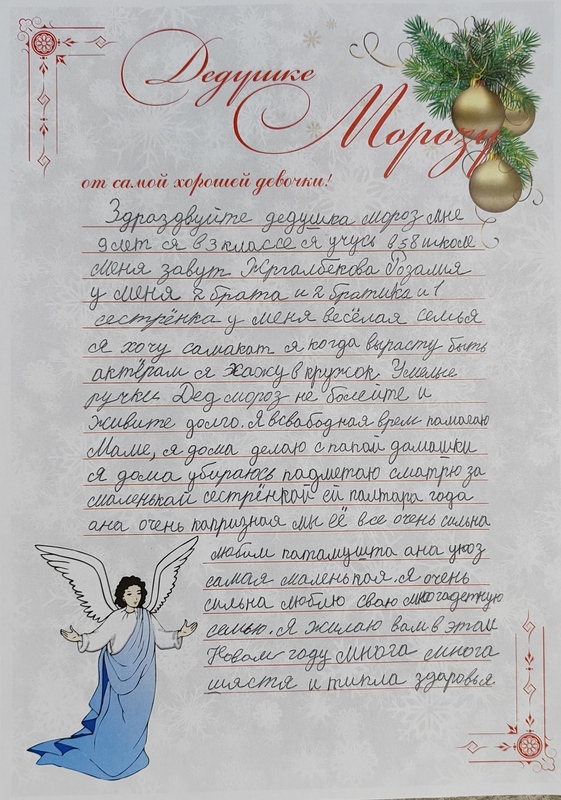 Дедушке
Морозу
от самой хорошей девочки!
Здраздвуйте дедушка мороз мне
9 лет я в 3 классе я учусь в 58 школе
меня завут Жргалбекова Розалия
у меня 2 брата и 2 братика и 1
сестрёнка у меня весёлая семья
я хочу самакат я когда вырасту быть
актёрам я хажу в кружок Умелые
ручки Дед мороз не болейте и
живите долго. Я всвабодная врем памагаю
Маме, я дома делаю с папой дамашки
я дома убираюсь падметаю сматрю за
смаленькай сестрёнкой ей палтара года
ана очень капризная мы её все очень сильна
любим патамушта ана унас
самая маленькая. Я очень
сильна люблю сваю многадетную
семью. Я жилаю вам в этам
Новам году многа многа
шястя и типла здаровья